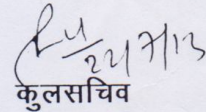 22/7/13
कुलसचिव